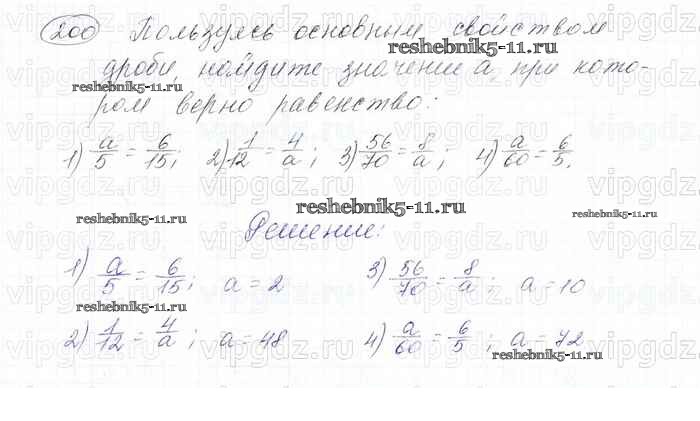 200 Пользуясь основным свойством
дроби, найдите значение a, при кото-
ром верно равенство:
1) a/5 = 6/15; 2) 1/12 = 4/a; 3) 56/70 = 8/a; 4) a/60 = 6/5.
Решение:
1) a/5 = 6/15; a = 2
2) 1/12 = 4/a; a = 48
3) 56/70 = 8/a; a = 10
4) a/60 = 6/5; a = 72
reshebnik5-11.ru
reshebnik5-11.ru
reshebnik5-11.ru
reshebnik5-11.ru
reshebnik5-11.ru
reshebnik5-11.ru
reshebnik5-11.ru
vipgdz.ru